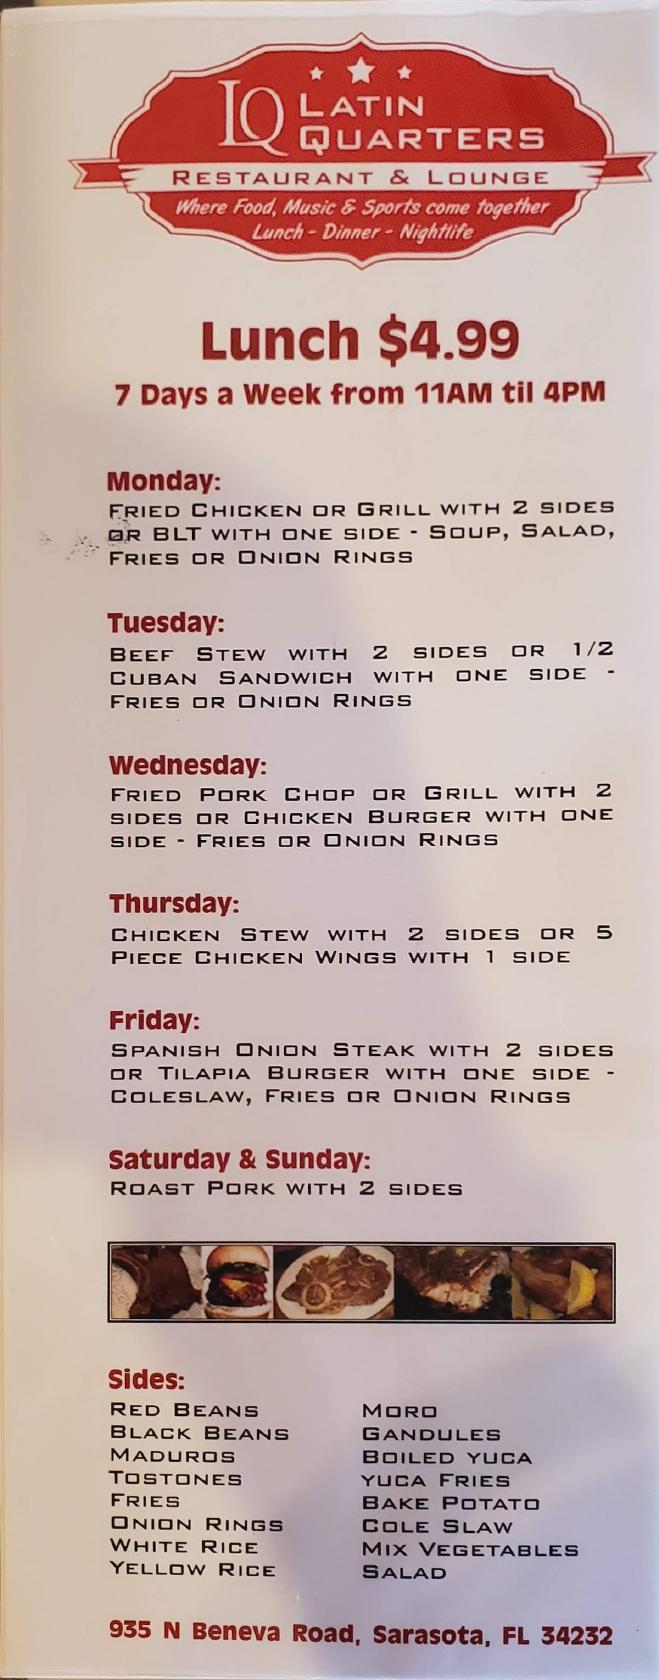 LQ LATIN
QUARTERS
RESTAURANT & LOUNGE
Where Food, Music & Sports come together
Lunch - Dinner - Nightlife
Lunch $4.99
7 Days a Week from 11AM til 4PM
Monday:
FRIED CHICKEN OR GRILL WITH 2 SIDES
OR BLT WITH ONE SIDE - SOUP, SALAD,
FRIES OR ONION RINGS
Tuesday:
BEEF STEW WITH 2 SIDES OR 1/2
CUBAN SANDWICH WITH ONE SIDE -
FRIES OR ONION RINGS
Wednesday:
FRIED PORK CHOP OR GRILL WITH 2
SIDES OR CHICKEN BURGER WITH ONE
SIDE - FRIES OR ONION RINGS
Thursday:
CHICKEN STEW WITH 2 SIDES OR 5
PIECE CHICKEN WINGS WITH 1 SIDE
Friday:
SPANISH ONION STEAK WITH 2 SIDES
OR TILAPIA BURGER WITH ONE SIDE -
COLESLAW, FRIES OR ONION RINGS
Saturday & Sunday:
ROAST PORK WITH 2 SIDES
Sides:
RED BEANS
BLACK BEANS
MADUROS
TOSTONES
FRIES
ONION RINGS
WHITE RICE
YELLOW RICE
MORO
GANDULES
BOILED YUCA
YUCA FRIES
BAKE POTATO
COLE SLAW
MIX VEGETABLES
SALAD
935 N Beneva Road, Sarasota, FL 34232